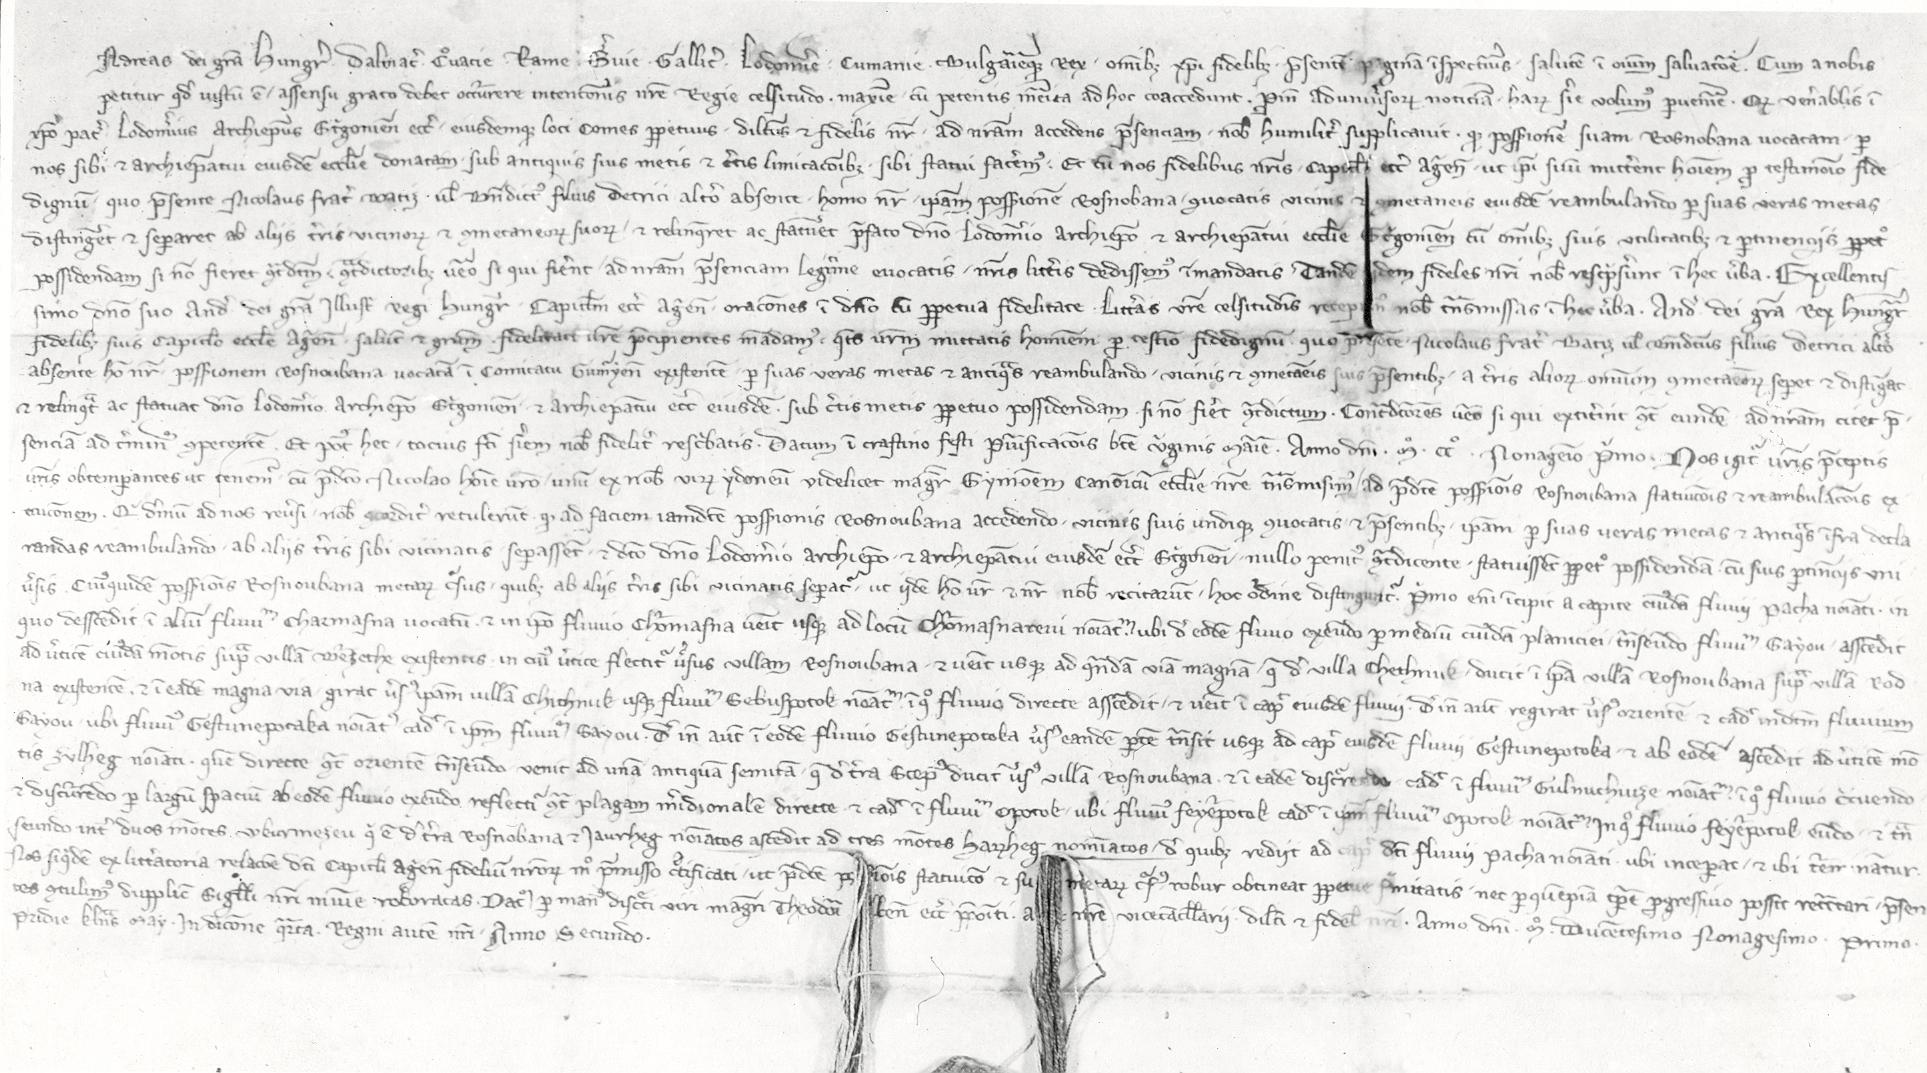 Andreas dei gra Hungr Dalmac Croacie Rame Svie Gallic Lodomie Cumanie Bulgarieq Rex omib xpi fidelib psente paginā īspecturis salutē ī omium saluatore. Cum a nobis
petitur qd iustū ē assensu grato debet occurere intentonis nre Regie celsitudo maxime cū petentis mita ad hoc coaccedunt. Proin ad univsor noticiā harz sie volum puenire. Qz venablis ī
xpo pat Lodomius Archiepus Strigonien ecc eiusdemq loci Comes ppetuus dilcus & fidelis nr ad nram accedens psenciam nob humilit supplicauit q possionē suam Rosnobana uocatam p
nos sibi & archiepatui eiusdē ecclie donatam sub antiquis suis metis & ctis limitacoib sibi statui facem. Et cū nos fidelibus nris Capitlo ecc Agen ut ipi suū mittent hoiem p testimoio fide
dignū quo psente Nicolaus frat Batiz ul Bndict filius Detrici altro absente homo nr ipam possionē Rosnobana quocatis vicinis & gmetaneis eiusdē reambulando p suas veras metas
distinguet & separet ab aliis tris vicinor & gmetaneor suor & relinqret ac statuet pfato dno Lodomio archiepo & archiepatui ecclie Strigonien cū omib suis utilitatib & ptinenciis ppet
possidendam si no fieret qtdctm qtdictorib ueo si qui fient ad nram psenciam legitime euocatis nris litteris dedissem ī mandatis. Tandē idem fideles nri nob rescpserunt ī hec uba. Excellentis
simo dno suo And dei gra Illust Regi Hungr Capitlm ecc Agen oracones ī dno cū ppetua fidelitate. Litteras vre celsitudis recepim nob tnsmissas ī hec uba. And dei gra Rex Hungr
fidelib suis Capitlo ecclie Agen salut & gram. fidelitati vre pcipientes mādam qts urm mittatis hominem p testio fidedignū quo psente Nicolaus frat Batiz ul Bndictus filius Detrici alto
absente ho nr possionem Rosnoubana uocatā ī Comitatu Gumuren existente p suas veras metas & antiqas reambulando vicinis & gmetaneis suis psentib a tris alior omnium gmetaneor sepet & distigat
& relinqt ac statuat dno Lodomio Archiepo Strigonien & archiepatui ecc eiusdē sub ctis metis ppetuo possidendam si no fiet qtdictum. Contdictores ueo si qui extiterint qt eundē ad nram citet p
senciā ad tmin gpetentē. Et post hec tocius fci siem nob fidelit rescbatis. Datum ī crastino festi Purificacois bte Virginis Marie. Anno dni m cc Nonagesio pmo. Nos igit uris pceptis
uris obtemperantes ut tenem cū pdco Nicolao hoie uro unū ex nob virz ydoneū videlicet magr Symoem Canoicū ecclie nre tnsmisim ad pdce possionis Rosnoubana statucois & reambulacois ex
ecuconem. Q dmū ad nos reusi nob gcordit retulerūt q ad faciem iamdce possionis Rosnoubana accedendo vicinis suis undiq quocatis & psentib ipam p suas ueras metas & antiqs īfra decla
randas reambulando ab aliis tris sibi vicinatis sepassēt & dco dno Lodomio archiepo & archiepatui eiusdē ecc Strigonien nullo penit qtdicente statuissēt ppet possidendā cū suis ptinenciis uni
usis. Cuiquidē possionis Rosnoubana metar csus quib ab aliis tris sibi vicinatis sepat ut iidē ho ur & nr nob recitarūt hoc ordine distinguit. Pmo eni īcipit a capite cuiusdā fluuii Pacha noiati in
quo dessedit ī aliū fluuiu Charmasna vocatū & in ipo fluuio Chormasna ueit usq ad locū Chormasnareui noiatu ubi d eodē fluuio exeundo p mediū cuiusdā planiciei tnseundo fluuiu Sayou assedit
ad uticē cuiusdā motis sup villā Wezethe existentis in cui uticē flectit usus villam Rosnoubana & ueit usq ad qndā viā magnā q d villa Chethnuk ducit ī ipa villā Rosnoubana sup villā Rod
na existentē & ī eadē magna via girat us ipam uillā Chithnuk usq fluuiu Sebuspotok noiatu ī q fluuio directe assedit & ueit ī cap eiusdē fluuii. D in aut regirat us orientē & cad indtm fluuium
Sayou ubi fluui Gestunepotaka noiat cad ī ipm fluuiu Sayou. D in aut ī eodē fluuio Gestunepotoka us eandē ptē tnsit usq ad cap eiusdē fluuii Gestunepotoka & ab eodē ascedit ad uticē mo
tis Zulheg noiati quē directe qt orientē tnseundo venit ad unā antiquā semitā q d tra Scep ducit us villā Rosnoubana & ī eadē discurrendo cad ī fluuiu Gulnuchuize noiatu ī q fluuio eundo
& discurrendo p largū spaciū ab eodē fluuio exeundo reflectit qt plagam midionalē directe & cad ī fluuiu Opotok ubi fluui feyerpotok cad ī ipm fluuiu Opotok noiatu. In q fluuio feyerpotok eundo & tn
seundo int duos motes Wburmezeu q ē d tra Rosnobana & Jaurheg noiatos ascedit ad tres motes Harzheg nominatos d quib rediit ad cap dci fluuii Pacha noiati ubi inceperat & ibi tmnatur.
Nos siqdē ex litteratoria relacoe dci Capitli Agen fidelium nror m pmisso ctificati ut pdce possionis statuico & su metar csus robur obtineat ppetue firmitatis nec p quempiā tpe pgressiuo possit retractari psen
tes gtulim dupplic Sigilli nri muie roboratas. Dat p man discti uiri magri Theodori ecc ppoiti nre vicecacllarii dilci & fidel nri. Anno dni m Ducentesimo Nonagesimo Primo
Pridie klns May. In dicione qrta. Regni autē nri Anno Secundo.